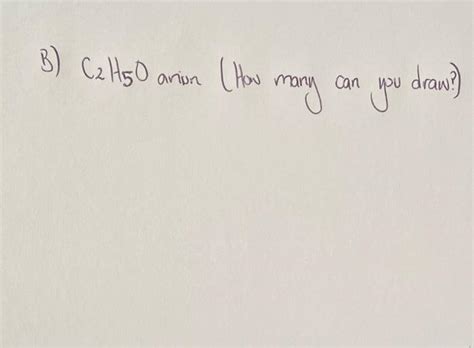 B) C2H5O anion (How many can you draw?)